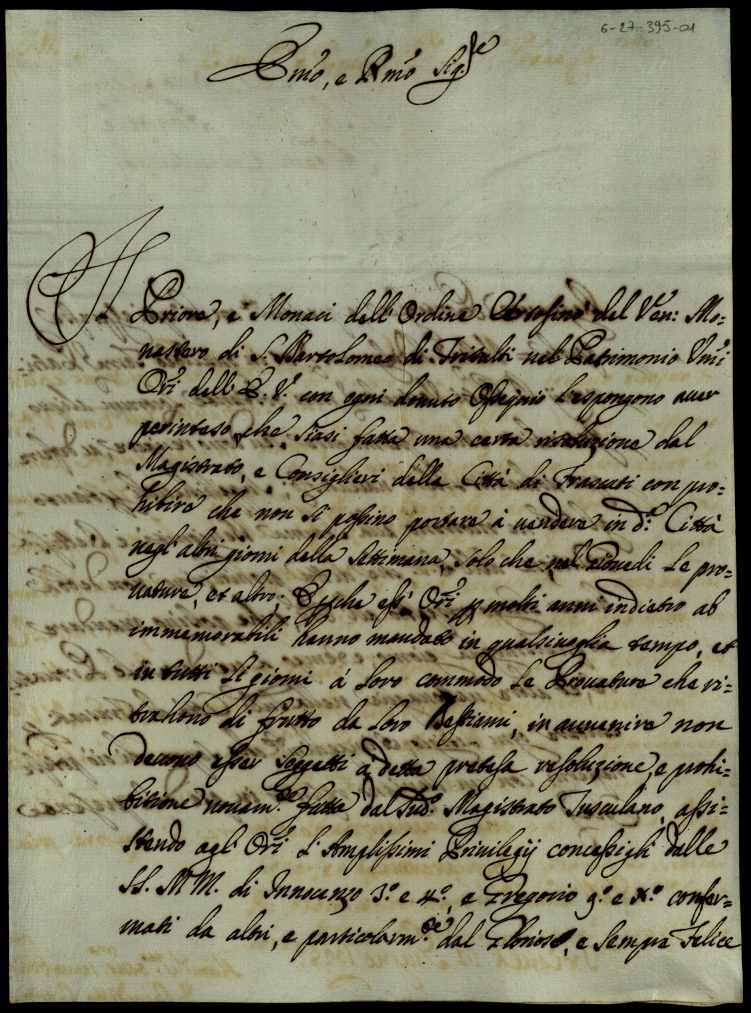 6-27-395-01
Emo, e Rmo Sig.re
Il Priore, e Monaci dell' Ordine Certosino del Ven: Mo=
nastero di S. Bartolomeo di Trisulti nel Patrimonio
Ori dell' E. V. con ogni dovuto Ossequio l'espongono aver
perinteso, che siasi fatta una certa risoluzione dal
Magistrato, e Consiglieri della Città di Frascati con pro=
hibire che non si possino portare à vendere in d.a Città
negl'altri giorni della Settimana, solo che nel Giovedi le pro=
vature, et altro; E perche essi Ori p molti anni indietro ab
immemorabili hanno mandato in qualsivoglia tempo, et
in tutti li giorni à loro commodo le Provature che ri=
trahono di frutto da loro Bestiami, in avvenire non
devono esser soggetti à detta pretesa resoluzione, e prohi=
bitione novam.te fatta dal Sud.o Magistrato Tusculano, assi=
stendo agl' Ori l'Amplissimi Privilegij concessigli dalle
SS. MM. di Innocenzo 3.o e 4.o, e Gregorio 9.o e X.o confer=
mati da altri, e particolarm.te dal Glorioso, e sempre Felice